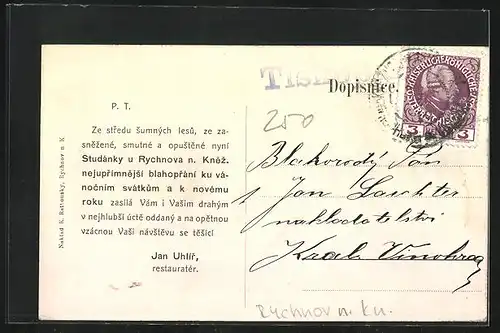 TISK
Dopisnice.
250
P. T.
Ze středu šumných lesů, ze za-
sněžené, smutné a opuštěné nyní
Studánky u Rychnova n. Kněž.
nejupřímnější blahopřání ku vá-
nočním svátkům a k novému
roku zasílá Vám i Vašim drahým
v nejhlubší úctě oddaný a na opětnou
vzácnou Vaši návštěvu se těšící
Jan Uhlíř,
restauratér.
Náklad K. Rathouský, Rychnov n. K
3 3
Blahorodý Pán
Jan Laichter
nakladatelství
Král. Vinohrady
Rychnov n. Kn.